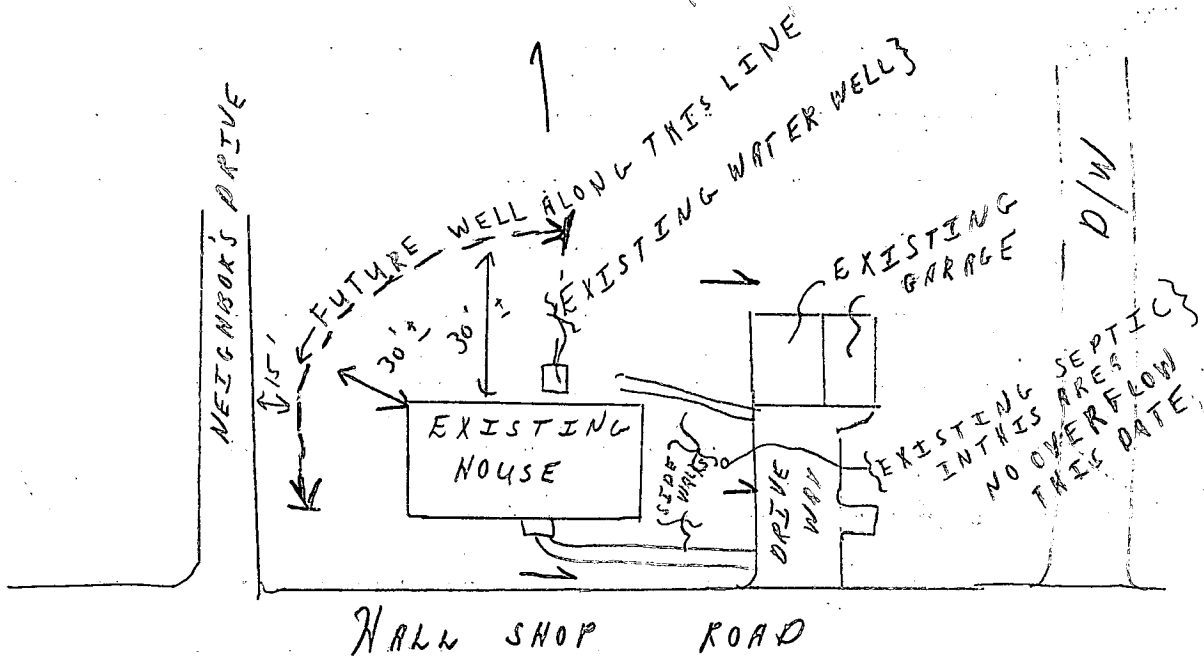 NEIGHBOR'S DRIVE
FUTURE WELL ALONG THIS LINE
EXISTING WATER WELL}
15'
30' ±
30' ±
EXISTING
GARAGE
D/W
EXISTING
HOUSE
SIDE
WALKS
DRIVE
WAY
{EXISTING SEPTIC}
IN THIS AREA
NO OVERFLOW
THIS DATE.
HALL SHOP ROAD